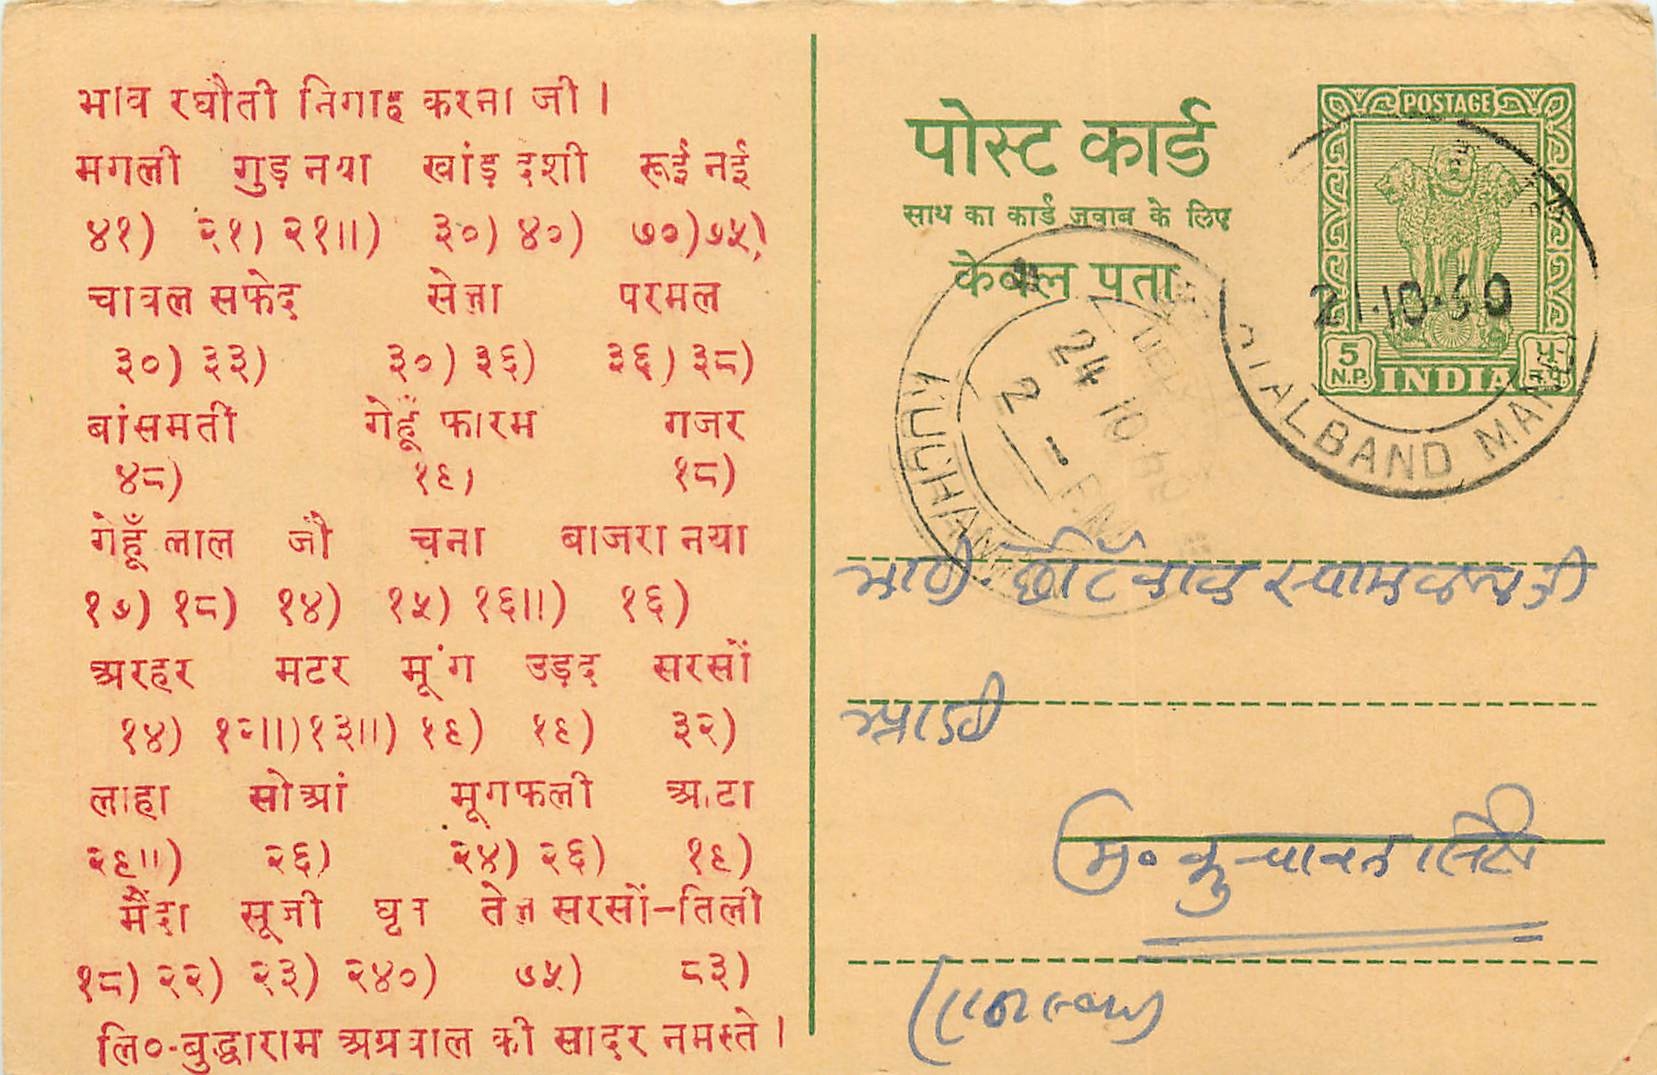 भाव रघौती निगाह करना जी ।
मगली गुड़ नया खांड़ दशी रूई नई
४१) २१) २१॥) ३०) ४०) ७०) ७५)
चावल सफेद सेला परमल
३०) ३३) ३०) ३६) ३६) ३८)
बांसमती गेहूँ फारम गजर
४८) १९) १८)
गेहूँ लाल जौ चना बाजरा नया
१७) १८) १४) १५) १६॥) १६)
अरहर मटर मूंग उड़द सरसों
१४) १२॥) १३॥) १९) १९) ३२)
लाहा सोआं मूगफली आटा
२९॥) २६) २४) २६) १९)
मैदा सूजी घृत तेल सरसों-तिली
१८) २२) २३) २४०) ७५) ८३)
लि०-बुद्धाराम अग्रवाल की सादर नमस्ते ।
पोस्ट कार्ड
साथ का कार्ड जवाब के लिए
केवल पता
POSTAGE
5 N.P. INDIA
21.10.60
BAND MANDI
KUCHAMAN
24 10 60
2 - P.M.